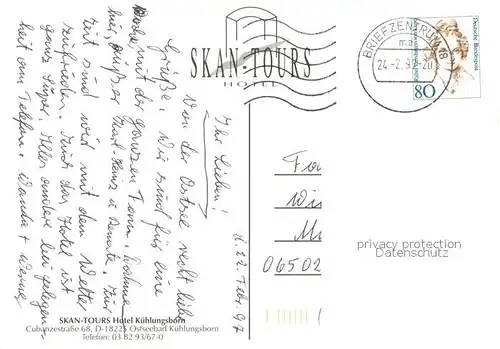 SKAN-TOURS
HOTEL
BRIEFZENTRUM 18
ma
24.-2.97-20
Deutsche Bundespost
80
d. 22. Febr. 97
Ihr Lieben!
Von der Ostsee recht liebe
Grüße. Wir sind für eine
Woche mit der ganzen Fam.
hier, außer Karl-Heinz u. Renate. Zur
Zeit sind wir mit dem Wetter
zufrieden. Auch das Hotel ist
ganz super. Alles andere bei gelegen-
heit am Telefon. + Werner
Fa
Wi
M
06502
privacy protection
Datenschutz
SKAN-TOURS Hotel Kühlungsborn
Cubanzestraße 68, D-18225 Ostseebad Kühlungsborn
Telefon: 03 82 93/67-0